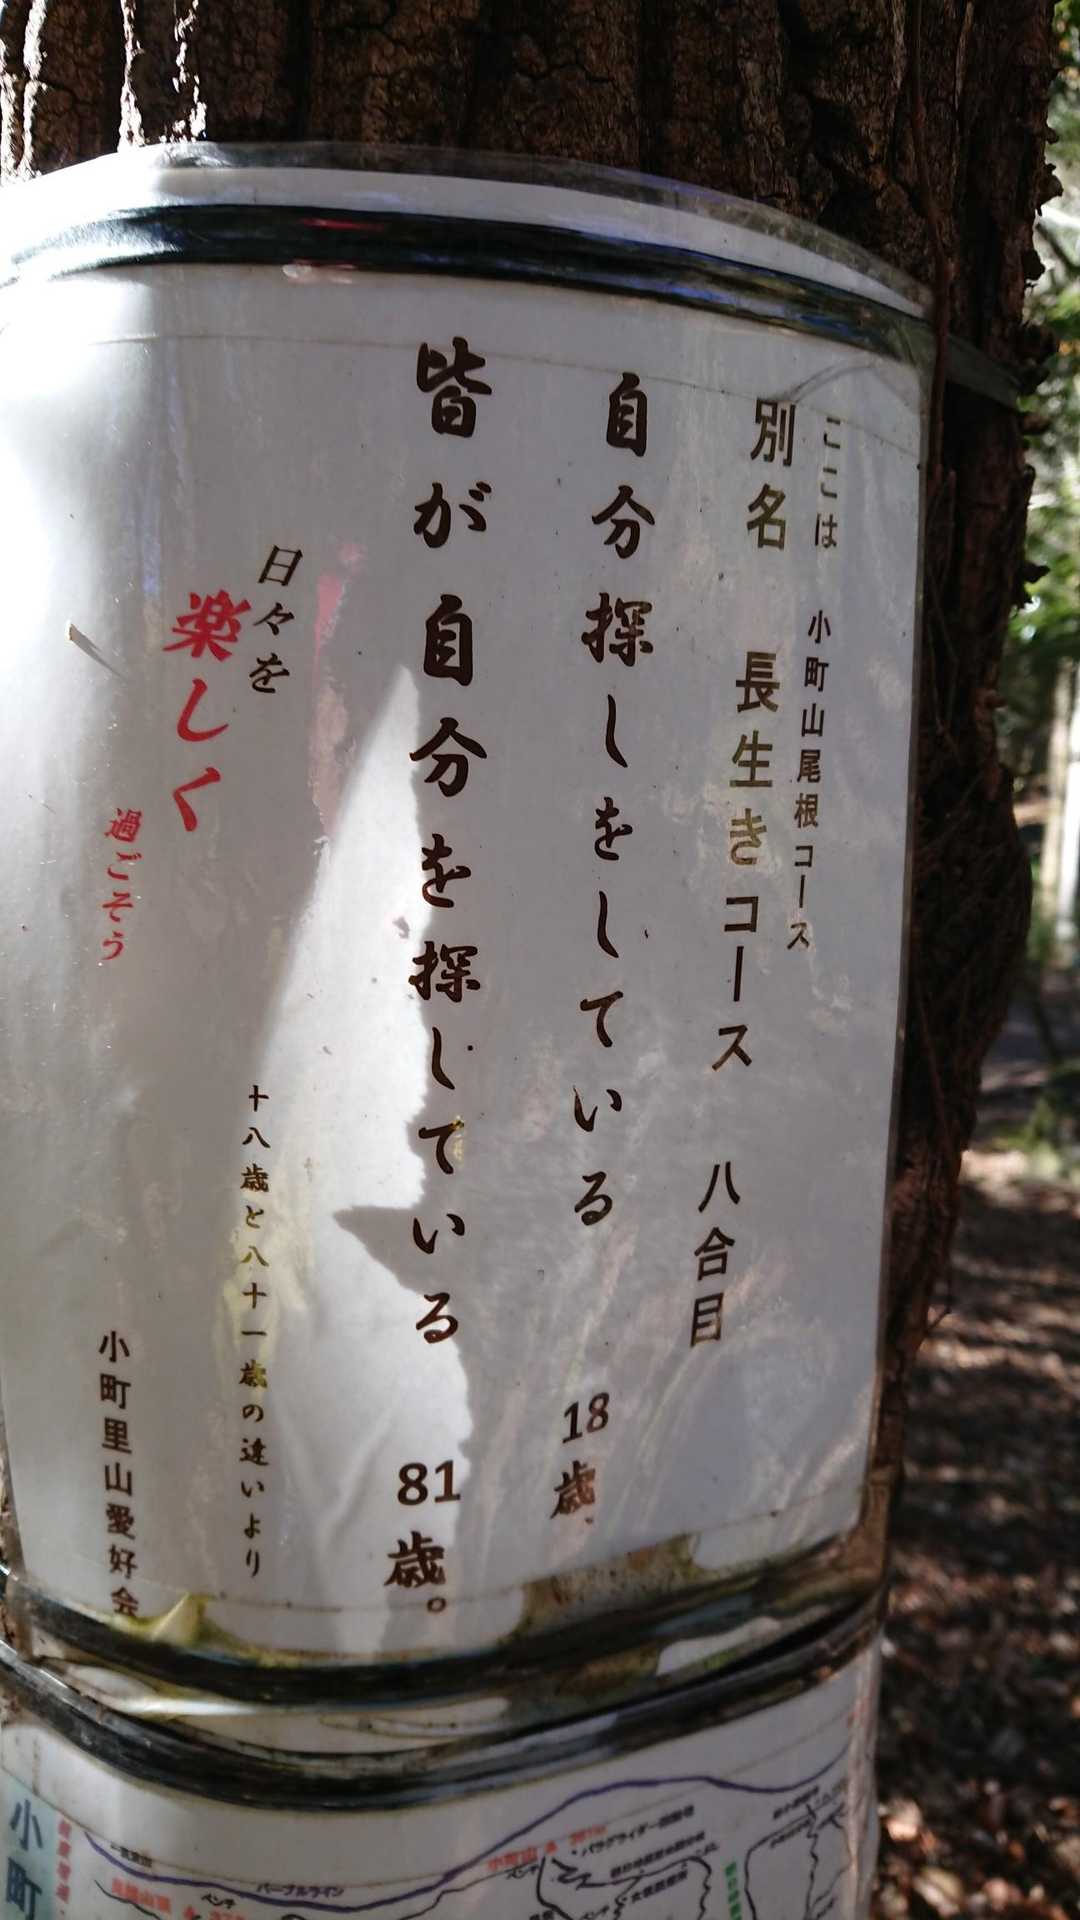 ここは　小町山尾根コース
別名　長生きコース　八合目
自分探しをしている　18歳、
皆が自分を探している　81歳。
日々を
楽しく
過ごそう
十八歳と八十一歳の違いより
小町里山愛好会
小町
パープルライン
ベンチ
ベンチ
ベンチ